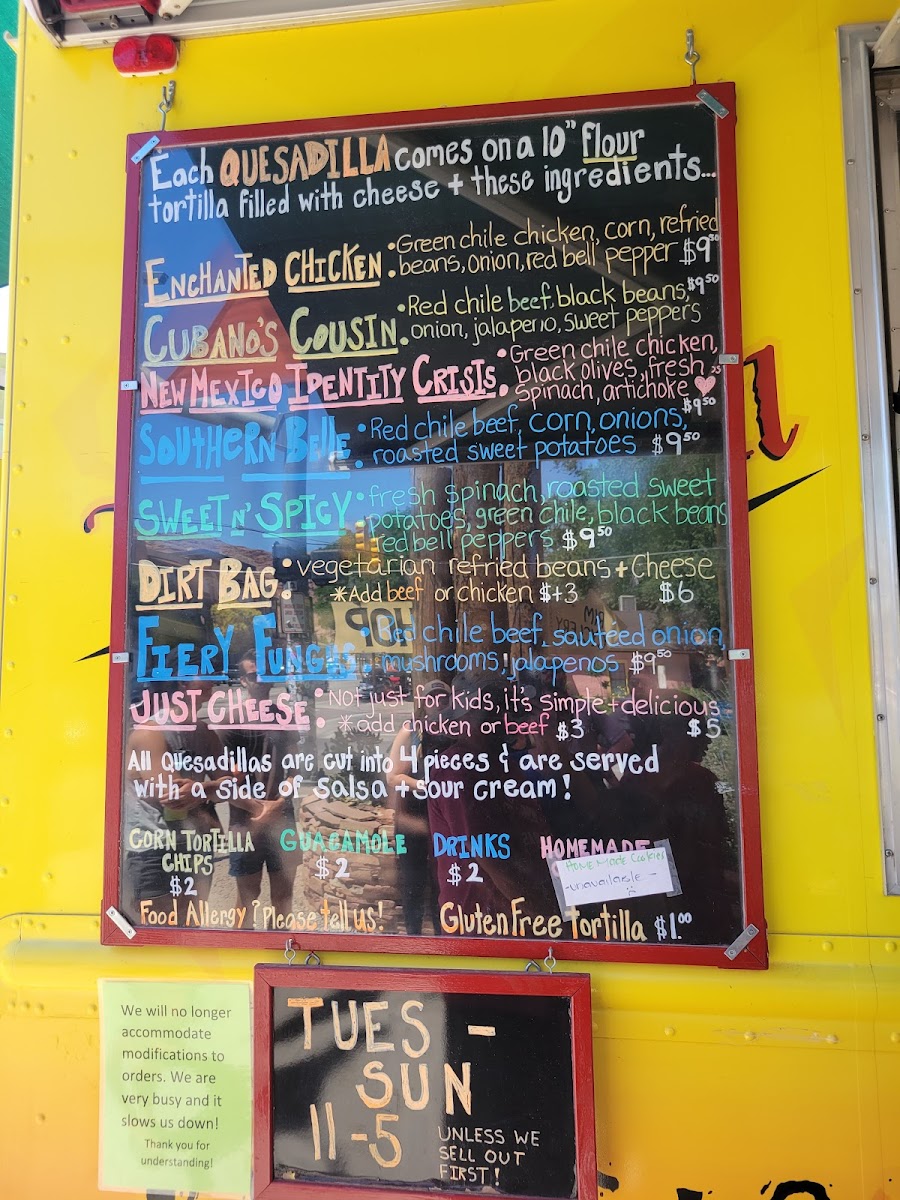 Each QUESADILLA comes on a 10" flour
tortilla filled with cheese + these ingredients...
ENCHANTED CHICKEN: Green chile chicken, corn, refried
beans, onion, red bell pepper $9⁵⁰
CUBANO'S COUSIN: Red chile beef, black beans, $9⁵⁰
onion, jalapeño, sweet peppers
NEW MEXICO IDENTITY CRISIS: Green chile chicken,
black olives, fresh
spinach, artichoke ♥
$9⁵⁰
SOUTHERN BELLE: Red chile beef, corn, onions,
roasted sweet potatoes $9⁵⁰
SWEET N' SPICY: fresh spinach, roasted sweet
potatoes, green chile, black beans
red bell peppers $9⁵⁰
DIRT BAG: vegetarian refried beans + Cheese
*Add beef or chicken $+3 $6
FIERY FUNGUS: Red chile beef, sauteed onion,
mushrooms, jalapenos $9⁵⁰
JUST CHEESE: Not just for kids, it's simple + delicious
*add chicken or beef $3 $5
All Quesadillas are cut into 4 pieces & are served
with a side of salsa + sour cream!
CORN TORTILLA
CHIPS
$2
GUACAMOLE
$2
DRINKS
$2
HOMEMADE
HOMEMADE Cookies
-unavailable-
Food Allergy? Please tell us!
Gluten Free Tortilla $1.⁰⁰
We will no longer
accommodate
modifications to
orders. We are
very busy and it
slows us down!
Thank you for
understanding!
TUES -
SUN
11-5
UNLESS WE
SELL OUT
FIRST!